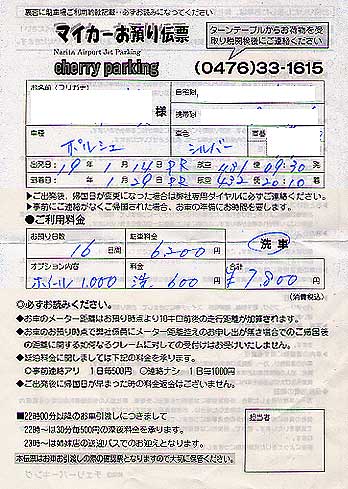 裏面に駐車場ご利用約款記載…必ずお読みになってください
マイカーお預り伝票
Narita Airport Jet Parking
cherry parking
ターンテーブルからお荷物を
受取り時間後にご連絡ください
(0476)33-1615
お名前(フリガナ)
様
自宅
携帯
車種
ポルシェ
車色
シルバー
車番
出発日: 19 年 1 月 14 日 PR 航空 431 便 09:30 発
到着日: 1 月 29 日 PR 航空 432 便 20:10 着
▶ご出発後、帰国日が変更になった場合は弊社専用ダイヤルに必ずご連絡ください。
▶事前にご連絡がなくご帰国された場合、お車の準備にお時間を要します。
●ご利用料金
お預り日数
16 日間
駐車料金
6,200 円
洗車
オプション内容
ホイール 1,000
料金
洗 600 円
合計
¥7,800
(消費税込)
◎必ずお読みください。
●お車のメーター距離はお預り時点より10キロ前後の走行距離が加算されます。
●お車のお預り時点で弊社係員にメーター距離控えのお申し出が無き場合でのご帰国後
の距離に関する如何なるクレームに対しての受付けはお受けいたしません。
●延泊料金に関しましては下記の料金を承ります。
○事前連絡アリ 1日毎500円 ○連絡ナシ 1日毎1000円
●ご出発後に帰国日が早まった時の料金返金はございません。
■22時00分以降のお車引渡しにつきまして
22時〜は30分毎500円の深夜料金を承ります。
23時〜は姉妹店の送迎バスでのお迎えとなります。
本伝票はお車お引渡しの際の確認票となりますので大切に保管ください。
担当者